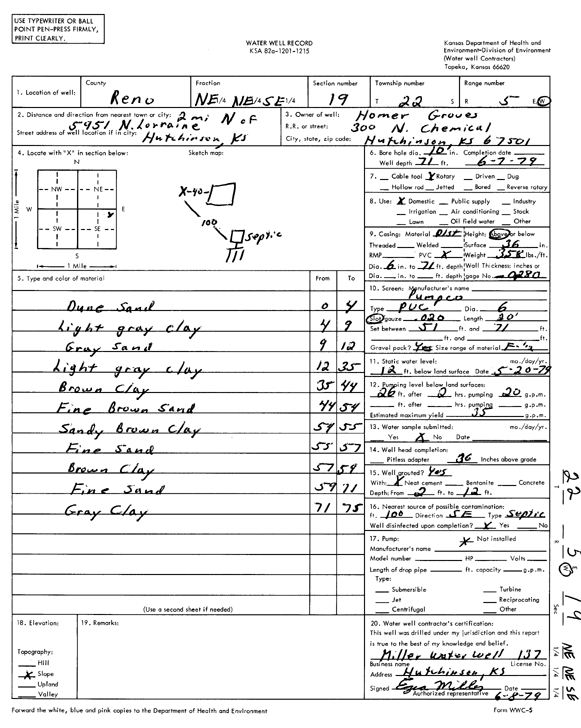 USE TYPEWRITER OR BALL
POINT PEN-PRESS FIRMLY,
PRINT CLEARLY.
WATER WELL RECORD
KSA 82a-1201-1215
Kansas Department of Health and
Environment-Division of Environment
(Water well Contractors)
Topeka, Kansas 66620
1. Location of well:
County
Reno
Fraction
NE 1/4 NE 1/4 SE 1/4
Section number
19
Township number
T 22 S
Range number
R 5 E/W
2. Distance and direction from nearest town or city: 2 mi N of
Street address of well location if in city: 5951 N. Lorraine
Hutchinson, KS
3. Owner of well: Homer Groves
R.R. or street: 300 N. Chemical
City, state, zip code: Hutchinson, KS 67501
4. Locate with "X" in section below:
N
NW NE
W E
SW SE
S
1 Mile
1 Mile
Sketch map:
X-40-
100
Septic
5. Type and color of material From To
Dune Sand 0 4
Light gray clay 4 9
Gray Sand 9 12
Light gray clay 12 35
Brown Clay 35 44
Fine Brown Sand 44 54
Sandy Brown Clay 54 55
Fine Sand 55 57
Brown Clay 57 59
Fine Sand 59 71
Gray Clay 71 75
(Use a second sheet if needed)
6. Bore hole dia. 10 in. Completion date
Well depth 71 ft. 6-7-79
7. Cable tool X Rotary Driven Dug
Hollow rod Jetted Bored Reverse rotary
8. Use: X Domestic Public supply Industry
Irrigation Air conditioning Stock
Lawn Oil field water Other
9. Casing: Material Plst Height: Above or below
Threaded Welded Surface 36 in.
RMP PVC X Weight lbs./ft.
Dia. 6 in. to 71 ft. depth Wall Thickness: inches or
Dia. in. to ft. depth gage No. 0280
10. Screen: Manufacturer's name
Pumpco
Type PVC Dia. 6
Slot gauze .020 Length 20'
Set between 51 ft. and 71 ft.
ft. and ft.
Gravel pack? Yes Size range of material
11. Static water level: mo./day/yr.
12 ft. below land surface Date 5-20-79
12. Pumping level below land surfaces:
26 ft. after 2 hrs. pumping 20 g.p.m.
ft. after hrs. pumping g.p.m.
Estimated maximum yield 35 g.p.m.
13. Water sample submitted: mo./day/yr.
Yes X No Date
14. Well head completion:
Pitless adapter 36 Inches above grade
15. Well grouted? Yes
With: X Neat cement Bentonite Concrete
Depth: From 2 ft. to 12 ft.
16. Nearest source of possible contamination:
ft. 100 Direction SE Type Septic
Well disinfected upon completion? X Yes No
17. Pump: X Not installed
Manufacturer's name
Model number HP Volts
Length of drop pipe ft. capacity g.p.m.
Type:
Submersible Turbine
Jet Reciprocating
Centrifugal Other
18. Elevation:
Topography:
Hill
X Slope
Upland
Valley
19. Remarks:
20. Water well contractor's certification:
This well was drilled under my jurisdiction and this report
is true to the best of my knowledge and belief.
Miller Water Well 137
Business name License No.
Address Hutchinson, KS
Signed Ezra Miller Date 6-8-79
Authorized representative
Forward the white, blue and pink copies to the Department of Health and Environment
Form WWC-5
T 22
R 5 W
Sec 19
1/4 NE 1/4 NE 1/4 SE